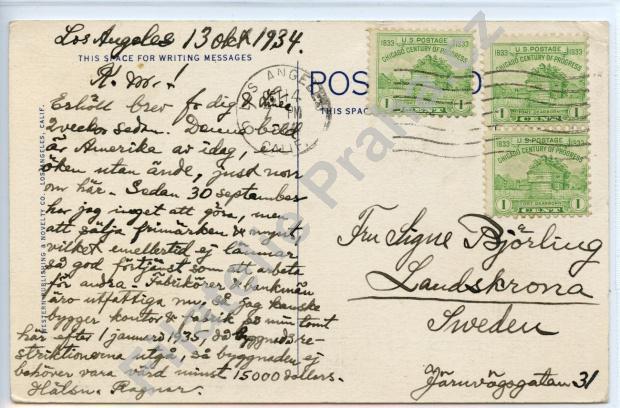 Los Angeles 13 okt 1934.
THIS SPACE FOR WRITING MESSAGES
K. mor!
Erhöll brev fr dig för
2 veckor sedan. Denna bild
är Amerika av idag,
öken utan ände, just norr
om här. Sedan 30 september
har jag inget att göra, men
att sälja frimärken & mynt
vilket emellertid ej lämnar
så god förtjänst som att arbeta
för andra. Fabrikörer & bankmän
äro utfattiga nu, så jag kanske
bygger kontor & fabrik på min tomt
här efter 1 januari 1935, då byggnadsre-
striktionerna utgå, så byggnaden ej
behöver vara värd minst 15000 dollars.
Hälsn. Ragnar.
WESTERN PUBLISHING & NOVELTY CO. LOS ANGELES, CALIF.
POST
THIS SPACE
LOS ANGELES
CALIF.
U.S. POSTAGE
1833 1933
CHICAGO CENTURY OF PROGRESS
FORT DEARBORN
1 CENT 1
U.S. POSTAGE
1833 1933
CHICAGO CENTURY OF PROGRESS
FORT DEARBORN
1 CENT 1
1833 1933
CHICAGO CENTURY OF PROGRESS
FORT DEARBORN
1 CENT 1
Fru Signe Björling
Landskrona
Sweden
Järnvägsgatan 31